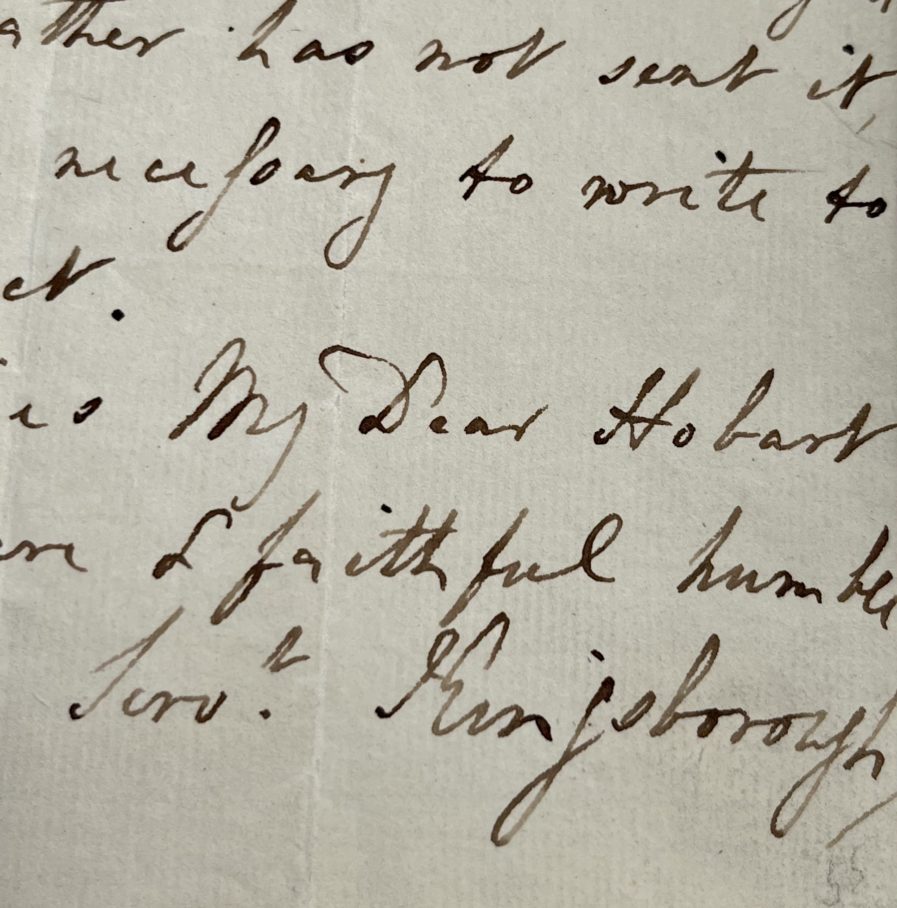 ather has not sent it,
neceſsary to write to
ct.
is My Dear Hobart
ere & faithful humble
Servt. Kingsborough